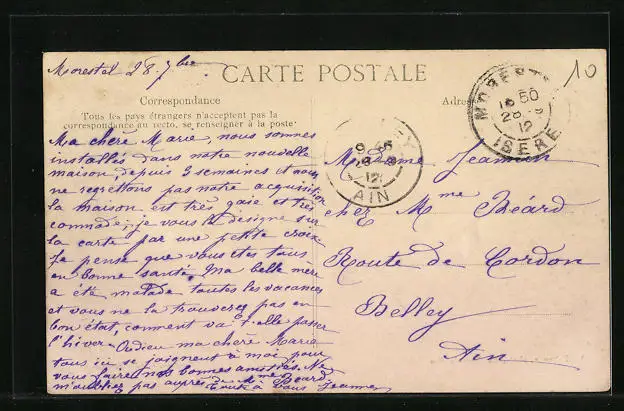 Morestel 28 7bre
CARTE POSTALE
Correspondance
Tous les pays étrangers n'acceptent pas la
correspondance au recto, se renseigner à la poste
Ma chère Marie nous sommes
installés dans notre nouvelle
maison, depuis 3 semaines et nous
ne regrettons pas notre acquisition
la maison est très gaie et très
commode; je vous la désigne sur
la carte par une petite croix
Je pense que vous êtes tous
en bonne santé. Ma belle mère
a été malade toutes les vacances
et vous ne la trouverez pas en
bon état, comment va t-elle passer
l'hiver. Adieu ma chère Marie
tous ici se joignent à moi pour
vous faire nos bonnes amitiés. Ne
m'oubliez pas auprès de Mme Béard
Toute à vous Jeanne
Adres
MOREST
16 50
28 9
12
ISERE
9
12
AIN
EY
10
Madame Jeannin
chez Mme Béard
Route de Cordon
Belley
Ain